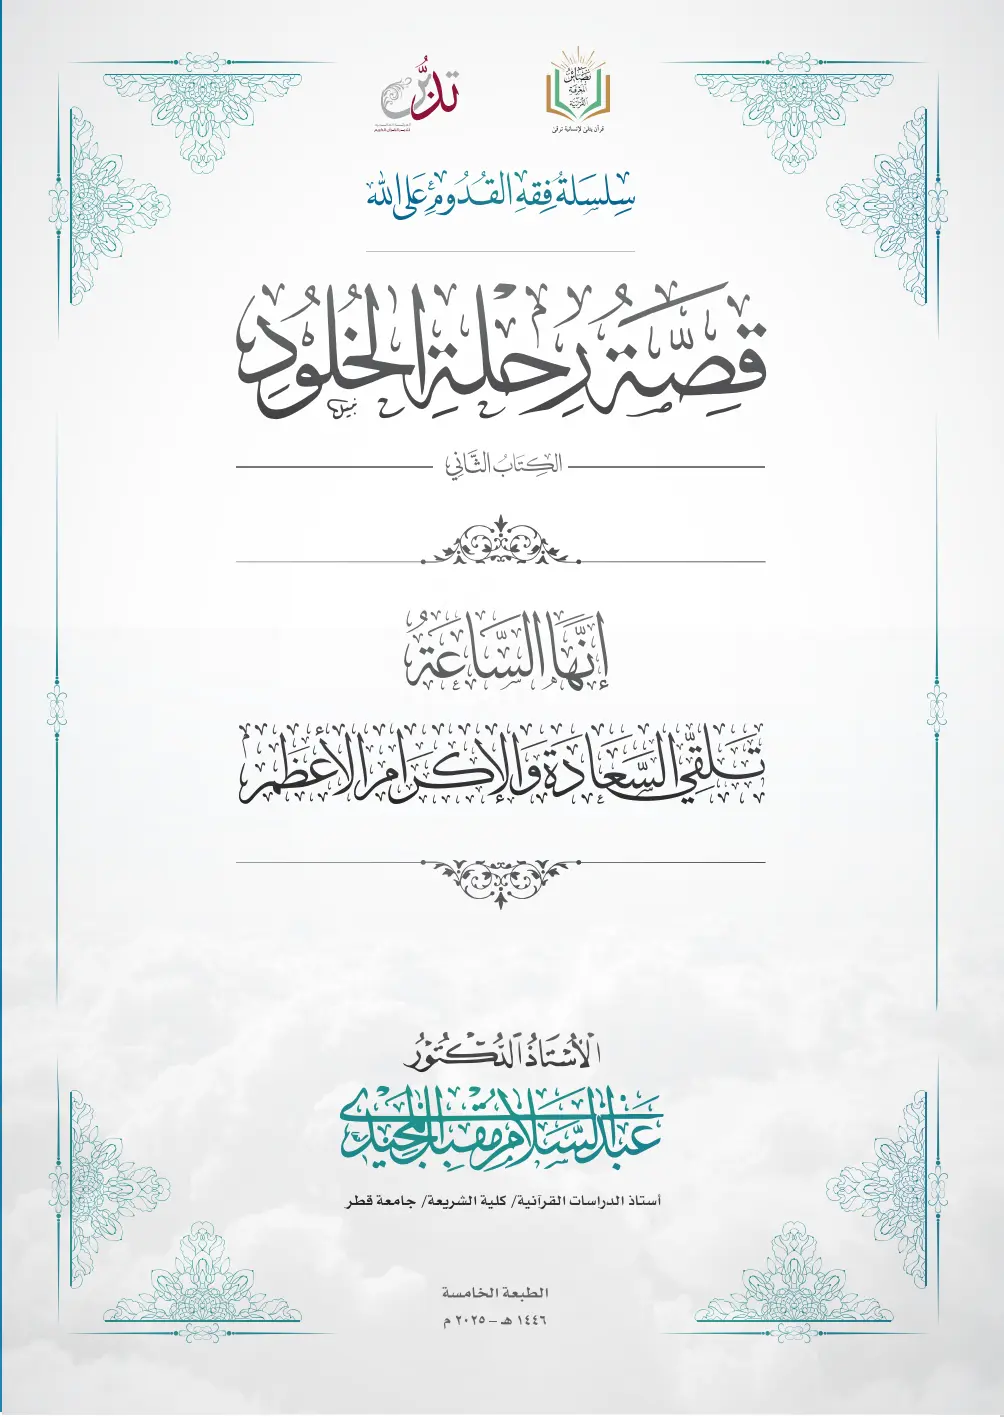 بصائر المعرفة القرآنية
قرآن يتلى لإنسانية ترقى
تدبر
سِلسَلَةُ فِقهِ القُدُومِ عَلى الله
قِصَّةُ رِحلَةِ الخُلُودِ
الكِتَابُ الثَّاني
إنَّهَا السَّاعَةُ
تَلَقِّي السَّعَادَةِ وَالإكرَامِ الأعظَمِ
الأُسْتَاذُ الدُّكْتُورُ
عَبدُ السَّلَامِ مُقبِل المَجِيدِي
أستاذ الدراسات القرآنية/ كلية الشريعة/ جامعة قطر
الطبعة الخامسة
١٤٤٦ هـ – ٢٠٢٥ م